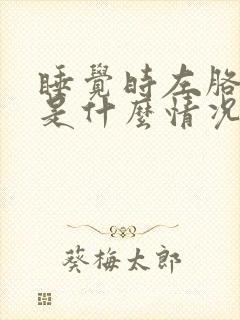 睡覺時左胳
是什麼情況
葵梅太郎